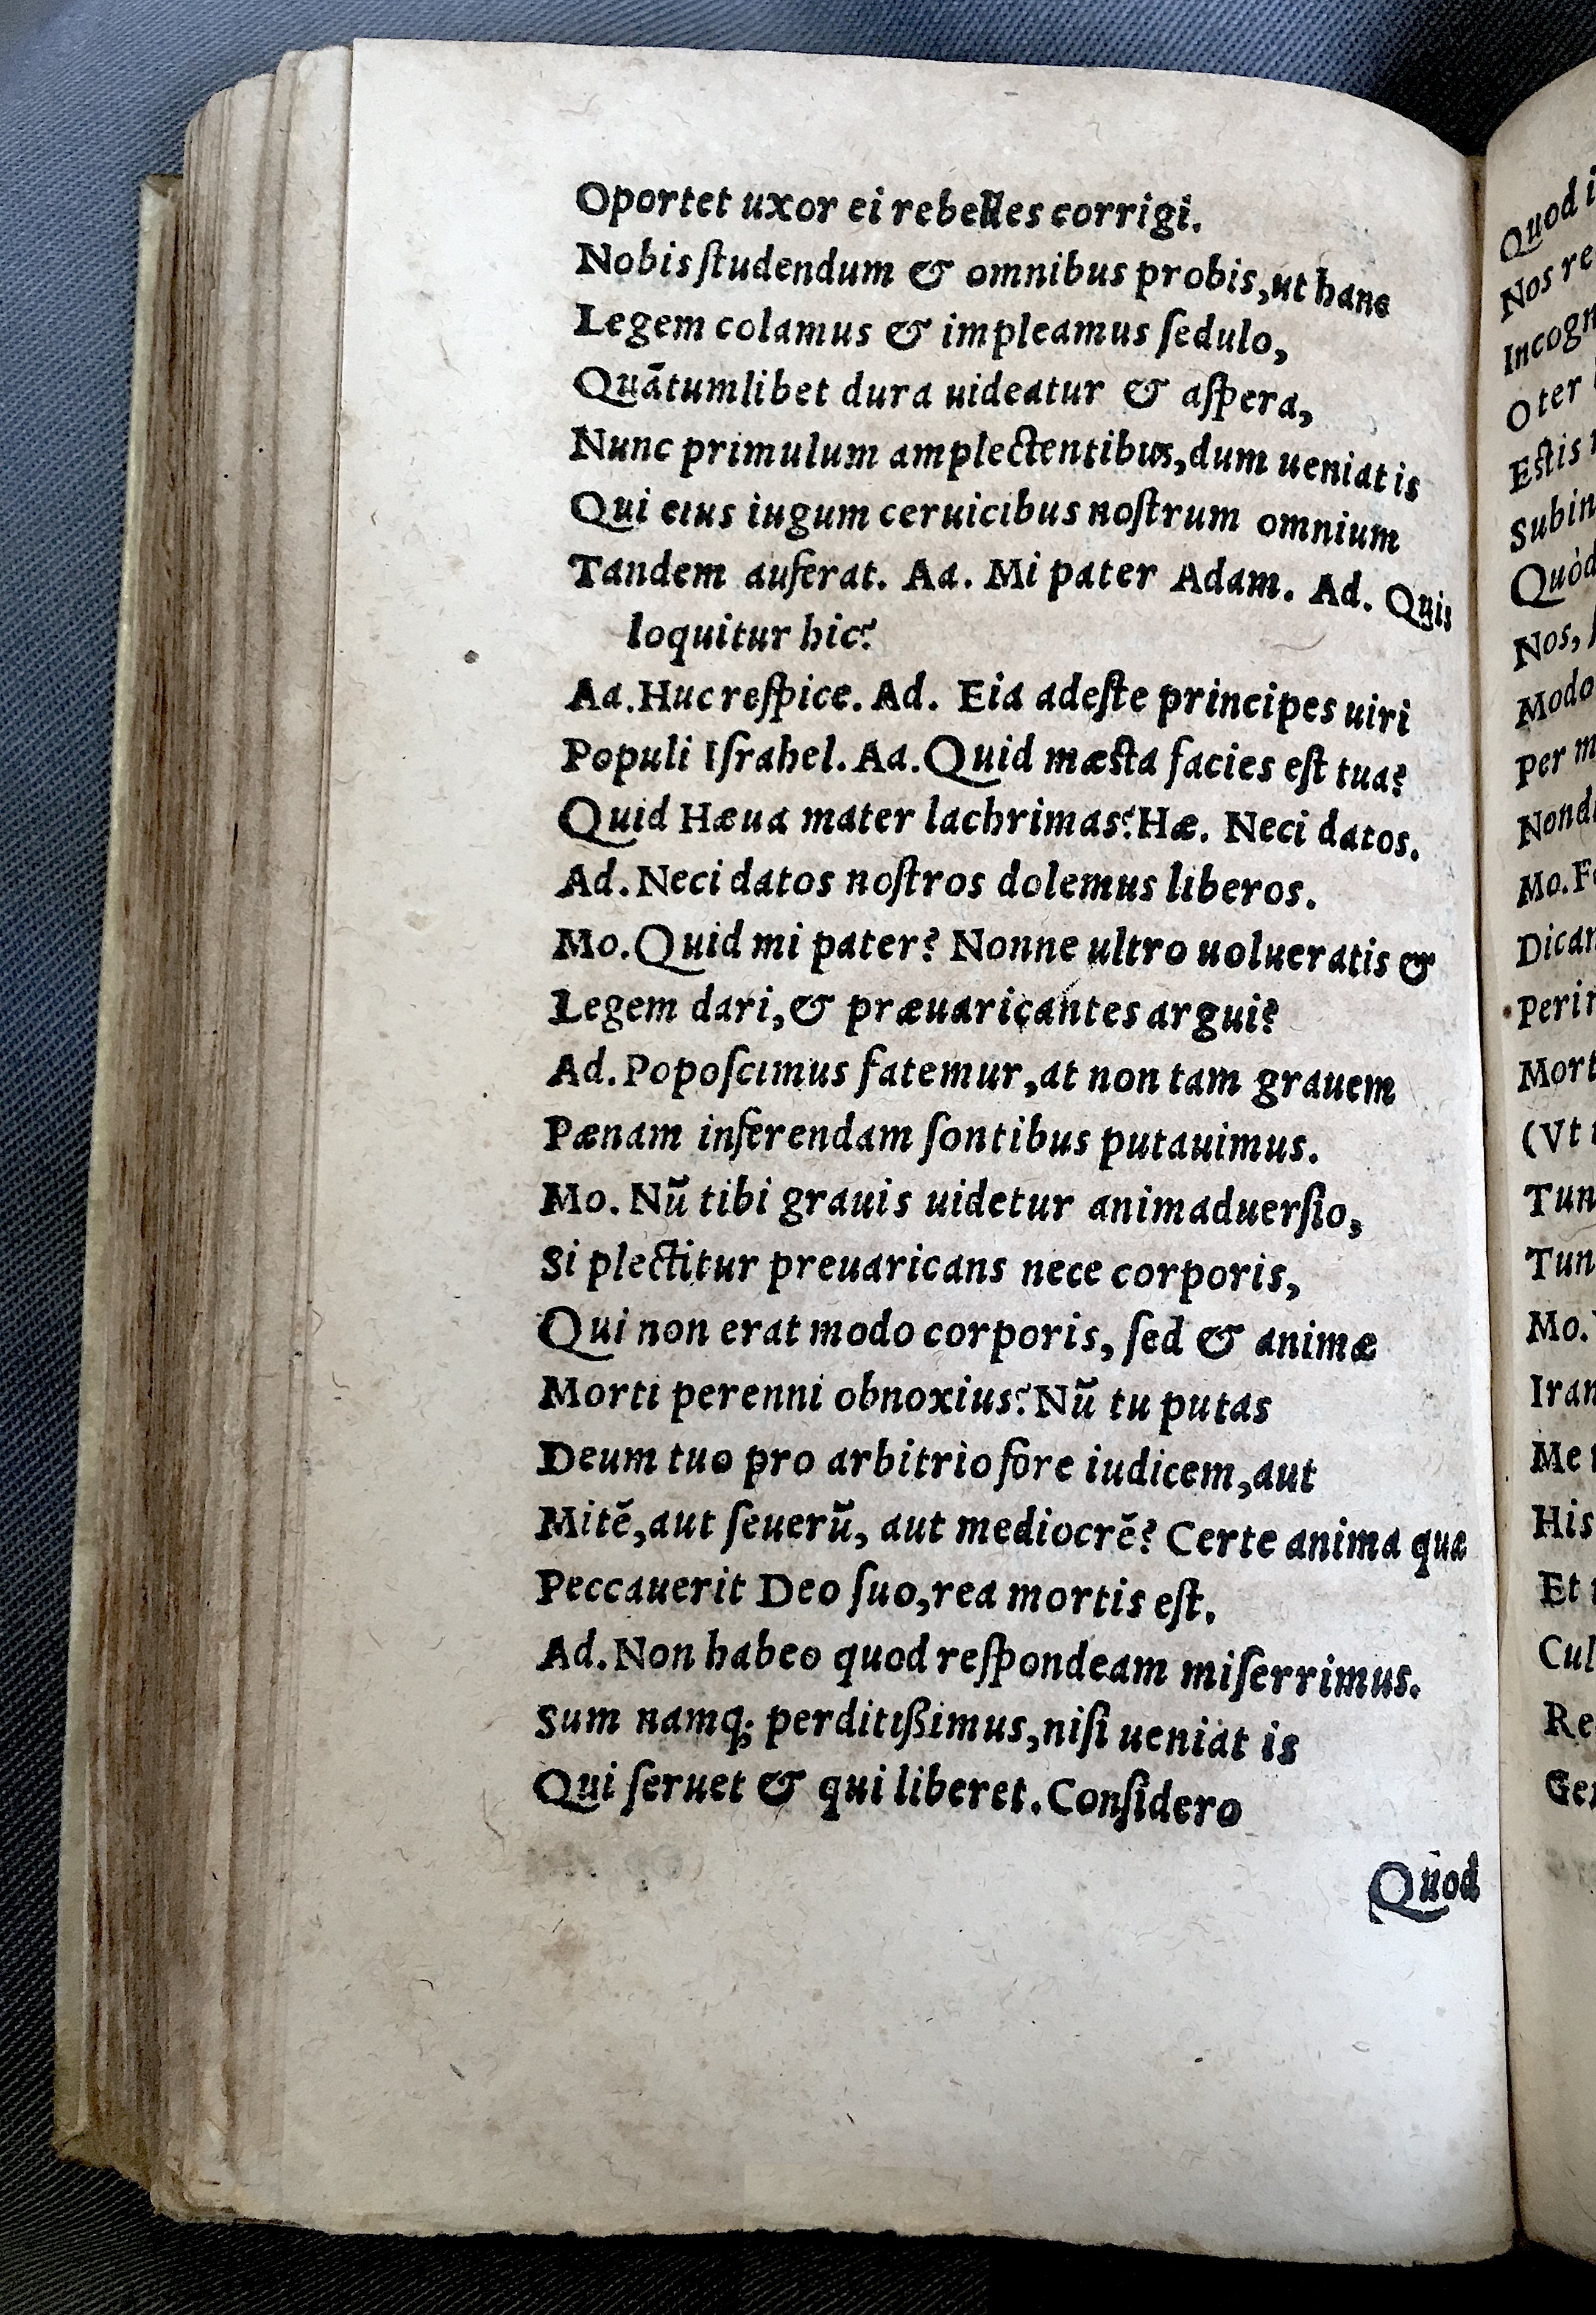 Oportet uxor ei rebelles corrigi.
Nobis ſtudendum & omnibus probis,ut hanc
Legem colamus & impleamus ſedulo,
Quātumlibet dura uideatur & aſpera,
Nunc primulum amplectentibus,dum ueniat is
Qui eius iugum ceruicibus noſtrum omnium
Tandem auferat. Aa. Mi pater Adam. Ad. Quis
loquitur hic?
Aa.Huc reſpice. Ad. Eia adeſte principes uiri
Populi Iſrahel. Aa.Quid mæſta facies eſt tua?
Quid Hæua mater lachrimas? Hæ. Neci datos.
Ad.Neci datos noſtros dolemus liberos.
Mo.Quid mi pater? Nonne ultro uolueratis &
Legem dari,& præuaricantes argui?
Ad.Popoſcimus fatemur,at non tam grauem
Pænam inferendam ſontibus putauimus.
Mo. Nū tibi grauis uidetur animaduerſio,
Si plectitur preuaricans nece corporis,
Qui non erat modo corporis, ſed & animæ
Morti perenni obnoxius? Nū tu putas
Deum tuo pro arbitrio fore iudicem,aut
Mitē,aut ſeuerū, aut mediocrē? Certe anima quæ
Peccauerit Deo ſuo,rea mortis eſt.
Ad.Non habeo quod reſpondeam miſerrimus.
Sum namq; perditißimus,niſi ueniat is
Qui ſeruet & qui liberet. Conſidero
Quod
Quod
Nos
Eſtis
Mo.
(Vt
Mo.
Me
His
Et